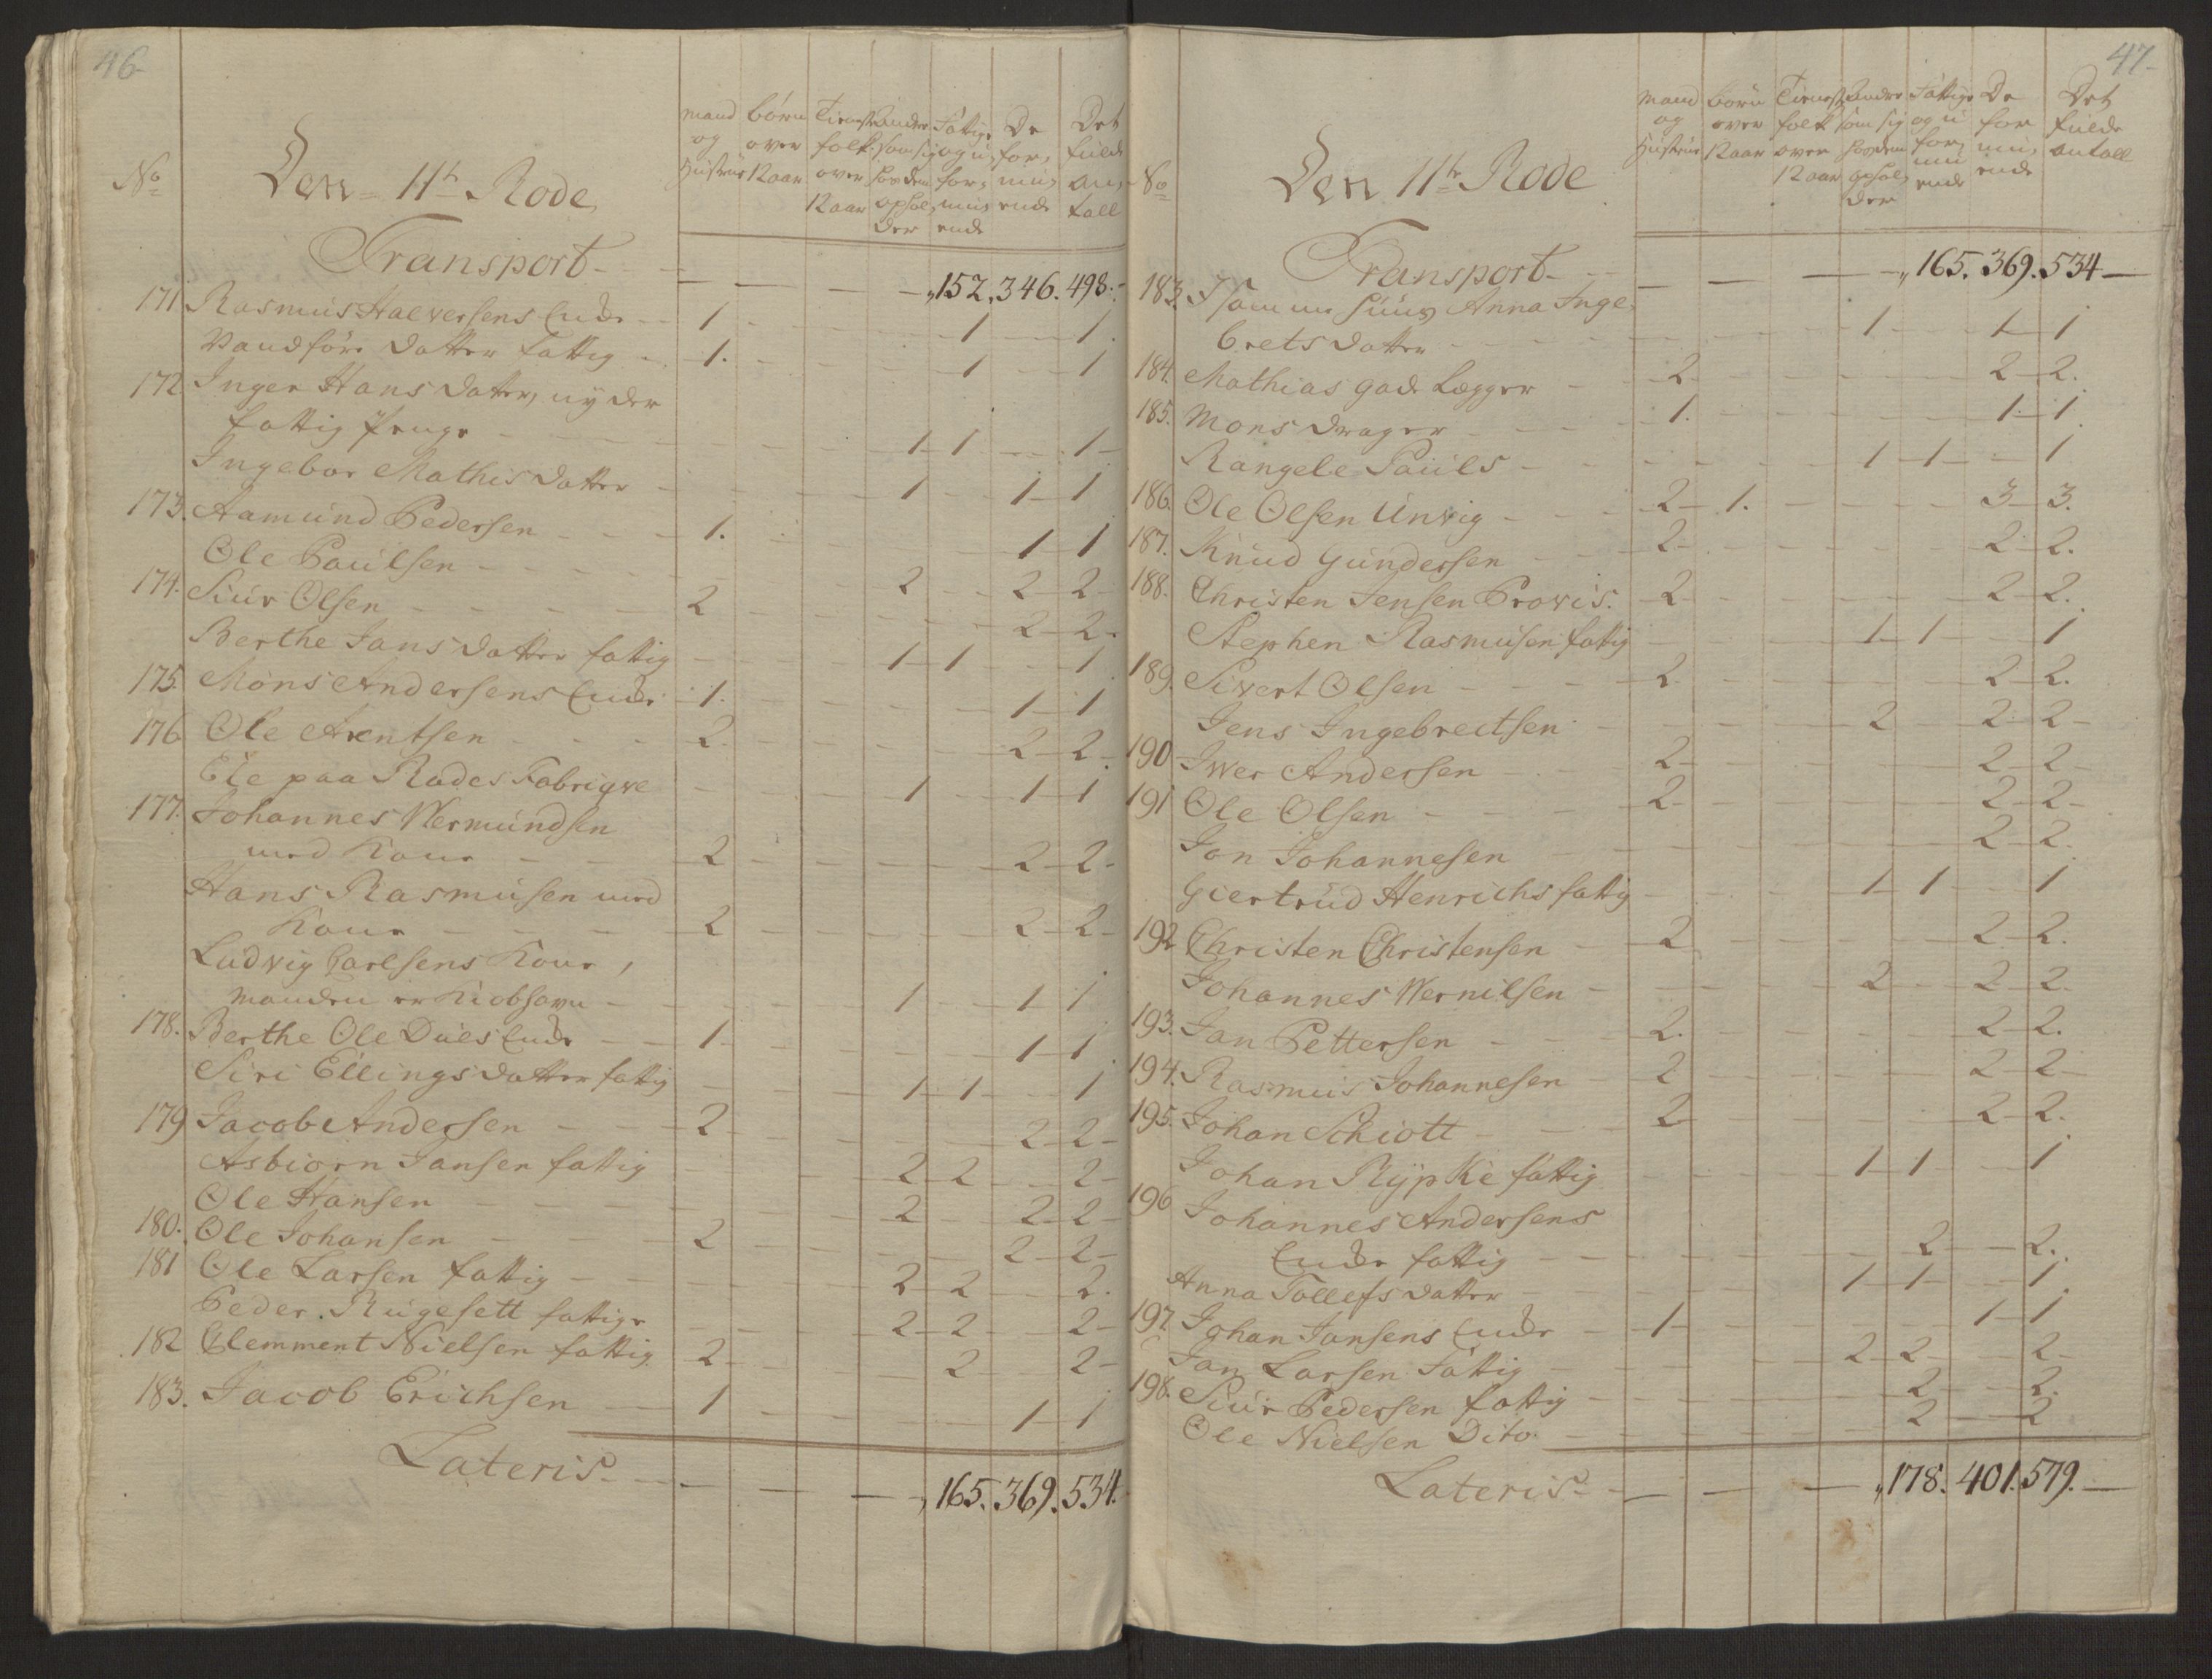 46
No
Den 11te Rode
mand og Hustrue
börn over 12 aar
Tienestefolk over 12 aar
andre som sig hos dem opholder
Fattige og uformuende
De formuende
Det fulde antall
Transport - - - - 152. 346. 498.
171. Rasmus Halversens Enke - 1. 1 1
Vanföre datter fattig - 1. 1 1
172 Inger Hans datter, nyder
fattig Penge - 1 1 1
Ingebor Mathis datter - 1 1 1
173. Aamund Pedersen - 1. 1 1
Ole Paulsen - 2 2 2
174. Siur Olsen - 2 2 2
Berthe Jans datter fattig - 1 1 1
175. Mons Andersens Enke 1. 1 1
176 Ole Arentsen 2 2 2
Ele paa Rodes Fabriqve 1 1 1
177. Johannes Wermundsen
med Kone - 2 2 2
Hans Rasmusen med
Kone - 2 2 2
Ludvig Carlsens Kone,
manden er Kiobhavn - 1 1 1
178. Berthe Ole Dües Enke 1 1 1
Siri Ellings datter fattig 1 1 1
179 Jacob Andersen - 2 2 2
Asbiorn Jansen fattig 2 2 2
Ole Hansen - 2 2 2
180. Ole Johansen - 2 2 2
181 Ole Larsen fattig - 2 2 2.
Peder Rügesett fattige 2 2 2
182 Clemment Nielsen fattig 2 2 2
183. Jacob Erichsen - 1 1 1
Lateris - - - - 165. 369. 534.
47
No
Den 11te Rode
mand og Hustrue
börn over 12 aar
Tienestefolk over 12 aar
andre som sig hos dem opholder
Fattige og uformuende
De formuende
Det fulde antall
Transport - - - - 165. 369. 534
183. I samme Huus Anna Inge-
brets datter - 1 1 1
184. Mathias gade Lægger - 2 2 2.
185. Mons drager - 1. 1 1
Rangele Pauls - 1 1 1
186. Ole Olsen Unvig - 2 1. 3 3.
187. Knud Gundersen - 2 2 2.
188. Christen Jensen Provis. 2 2 2.
Stephen Rasmusen fattig 1 1 1
189. Sivert Olsen - 2 2 2.
Jens Ingebreitsen - 2 2 2
190 Iwer Andersen - 2 2 2
191 Ole Olsen - 2 2 2
Jon Johannesen 2 2
Giertrud Henrichs fattig 1 1 1
192 Christen Christensen - 2 2 2.
Johannes Wernilsen - 2 2 2.
193. Jan Pettersen - 2. 2 2.
194. Rasmus Johannesen - 2 2 2
195. Johan Schiott - 2 2 2.
Johan Rypke fattig 1 1 1
196 Johannes Andersens
Enke fattig - 2 2.
Anna Tollefs datter - 1 1 1
197 Johan Jansens Enke - 1 1 1
Jan Larsen Fattig - 2 2 2
198. Siur Pedersen fattig - 2 2.
Ole Nielsen Dito - 2 2
Lateris - - - - 178. 401. 579.